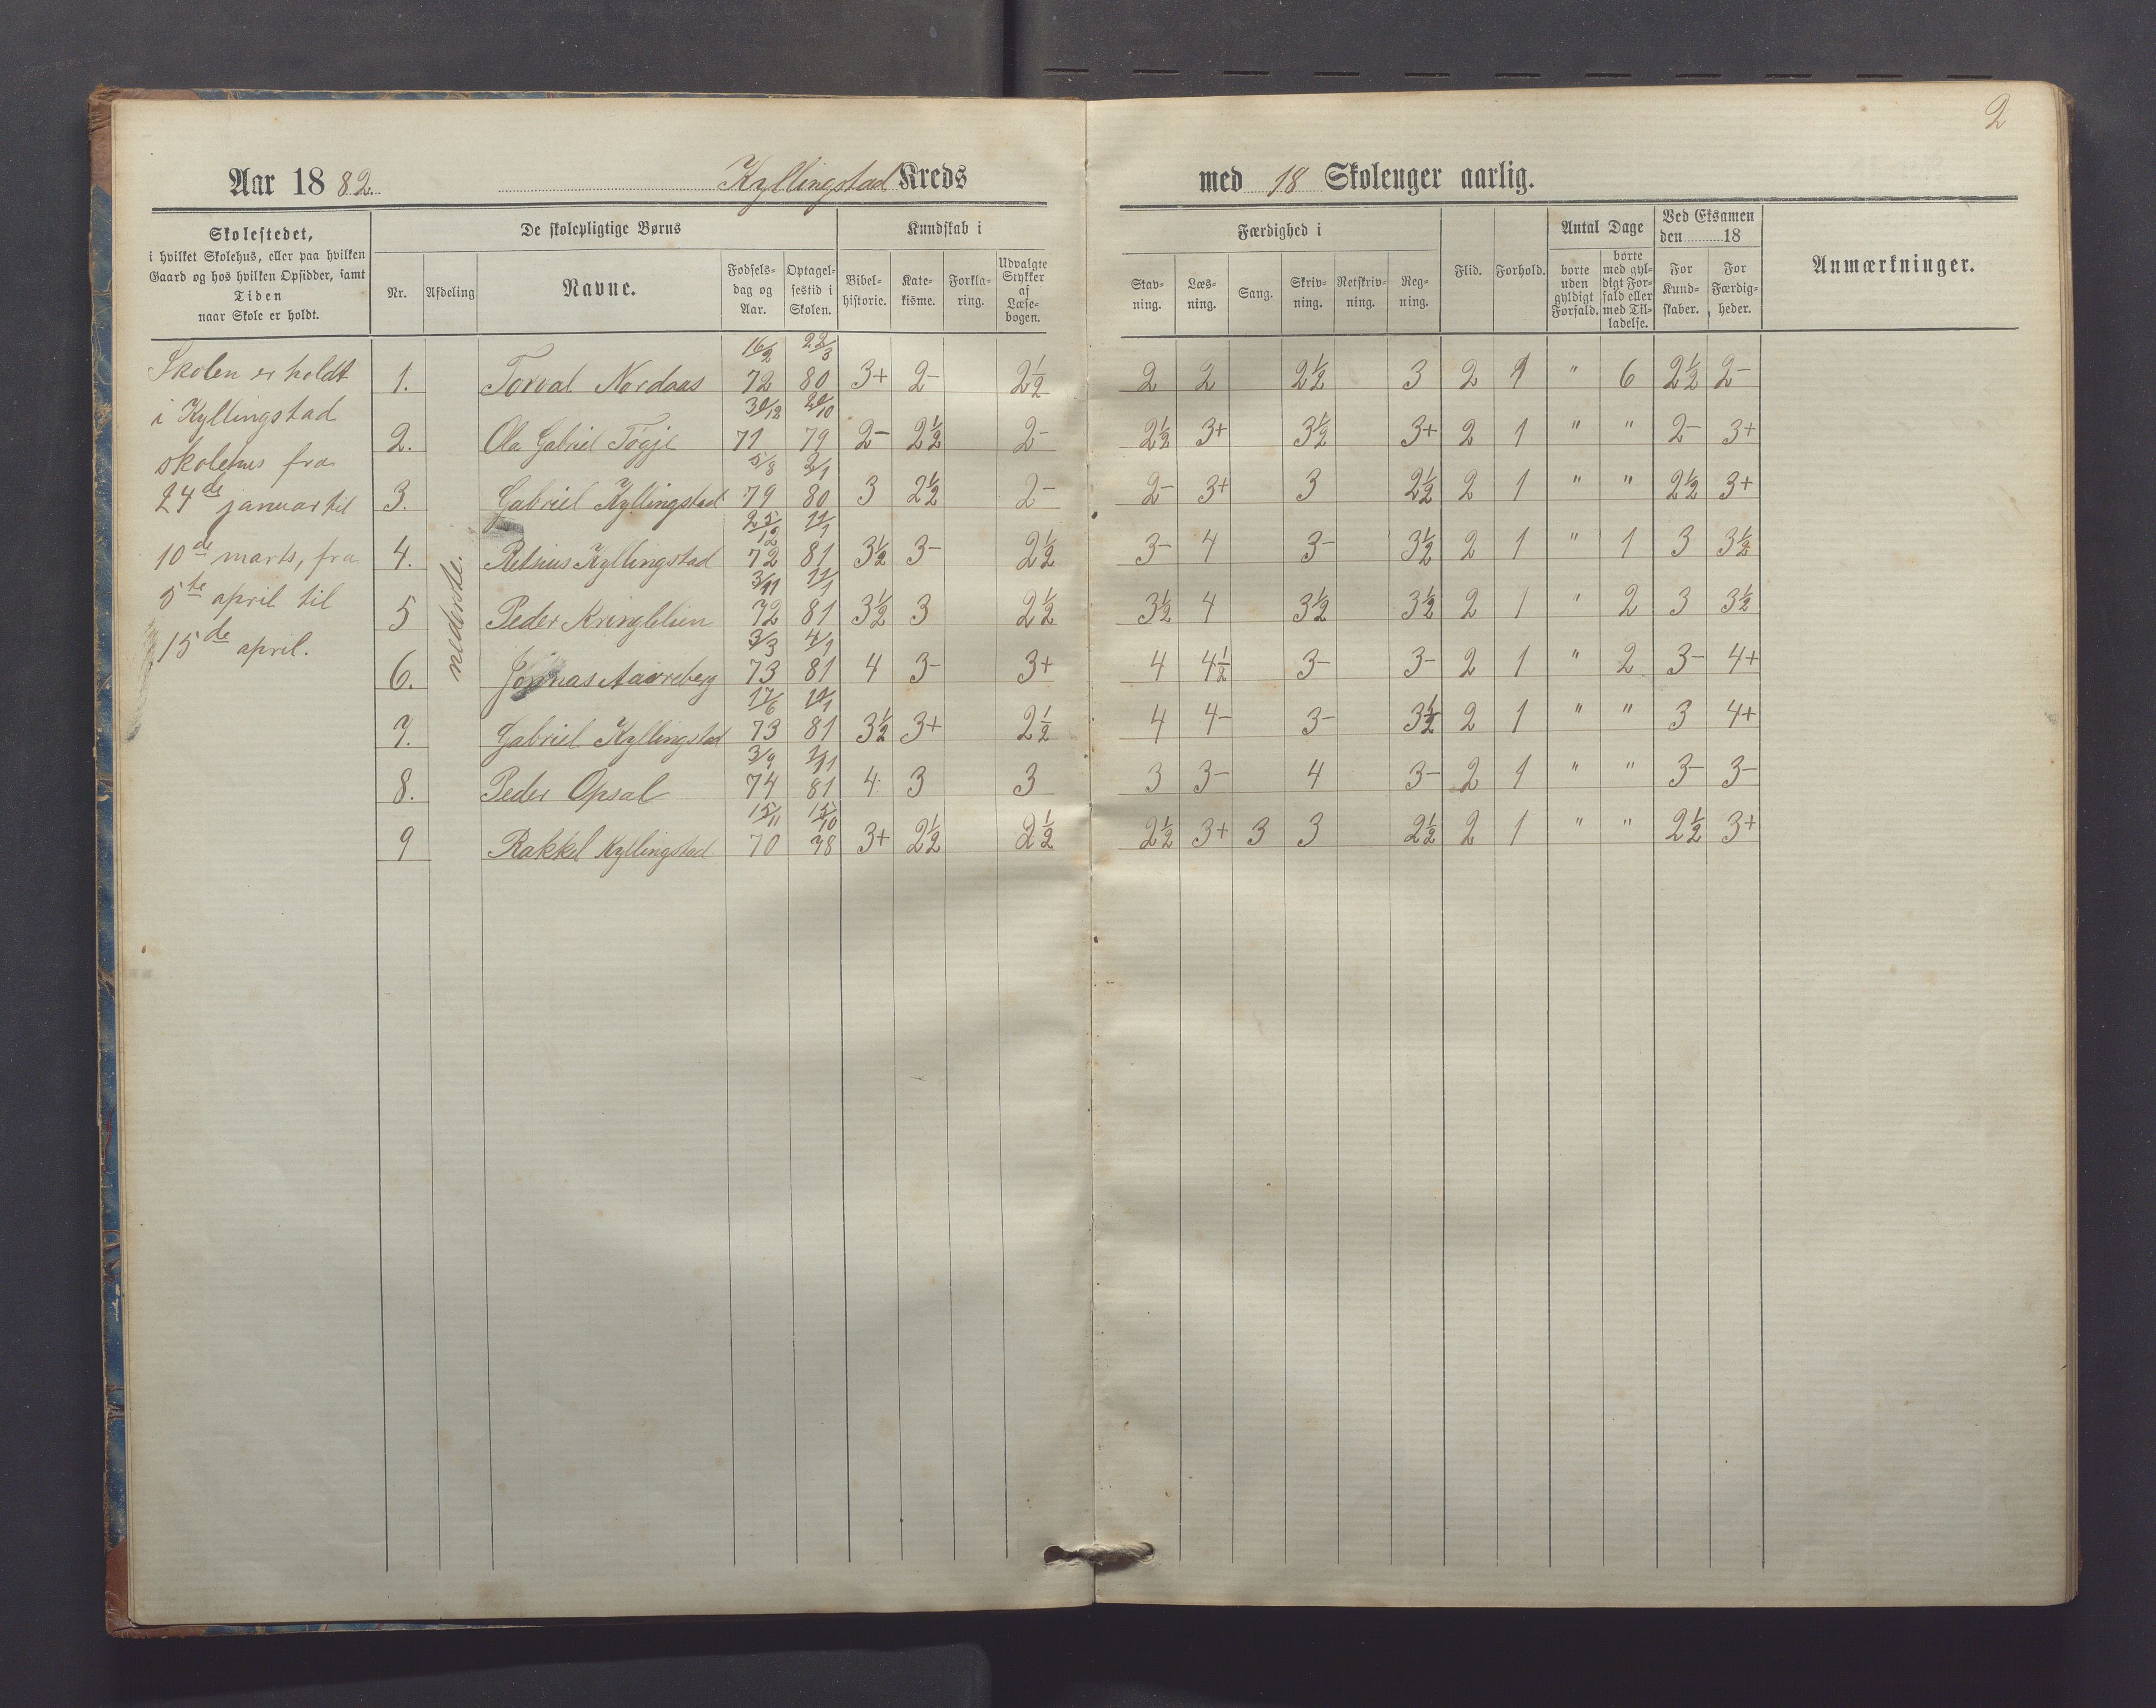 2
Aar 1882. Kyllingstad Kreds med 18 Skoleuger aarlig.
Skolestedet,
i hvilket Skolehus, eller paa hvilken
Gaard og hos hvilken Opsidder, samt
Tiden
naar Skole er holdt.
De skolepligtige Børns
Nr. Afdeling Navne. Fødsels-dag og Aar. Optagel-sestid i Skolen.
Kundskab i
Bibel-historie. Kate-kisme. Forkla-ring. Udvalgte Stykker af Læse-bogen.
Færdighed i
Stav-ning. Læs-ning. Sang. Skriv-ning. Retskriv-ning. Reg-ning.
Flid. Forhold.
Antal Dage
borte uden gyldigt Forfald. borte med gyl-digt For-fald eller med Til-ladelse.
Ved Eksamen
den 18
For Kund-skaber. For Færdig-heder.
Anmærkninger.
Skolen er holdt
i Kyllingstad
skolehus fra
24de januar til
10de marts, fra
5te april til
15de april.
nederste.
1. Torval Nordaas 16/2 72 22/3 80 3+ 2- 2½ 2 2 2½ 3 2 1 " 6 2½ 2-
2. Ola Gabriel Tøgje 30/12 71 20/10 79 2- 2½ 2- 2½ 3+ 3½ 3+ 2 1 " " 2- 3+
3. Gabriel Kyllingstad 5/8 79 2/1 80 3 2½ 2- 2- 3+ 3 2½ 2 1 " " 2½ 3+
4. Kyllingstad 25/12 72 11/1 81 3½ 3- 2½ 3- 4 3- 3½ 2 1 " 1 3 3½
5 Peder Kringlelien 3/11 72 11/1 81 3½ 3 2½ 3½ 4 3½ 3½ 2 1 " 2 3 3½
6. Jonnas Aarreberg 3/3 73 4/1 81 4 3- 3+ 4 4½ 3- 3- 2 1 " 2 3- 4+
7. Gabriel Kyllingstad 17/6 73 81 3½ 3+ 2½ 4 4- 3- 3½ 2 1 " " 3 4+
8. Peder Opsal 3/9 74 1/11 81 4 3 3 3 3- 4 3- 2 1 " " 3- 3-
9 Rakkel Kyllingstad 15/11 70 15/10 78 3+ 2½ 2½ 2½ 3+ 3 3 2½ 2 1 " " 2½ 3+